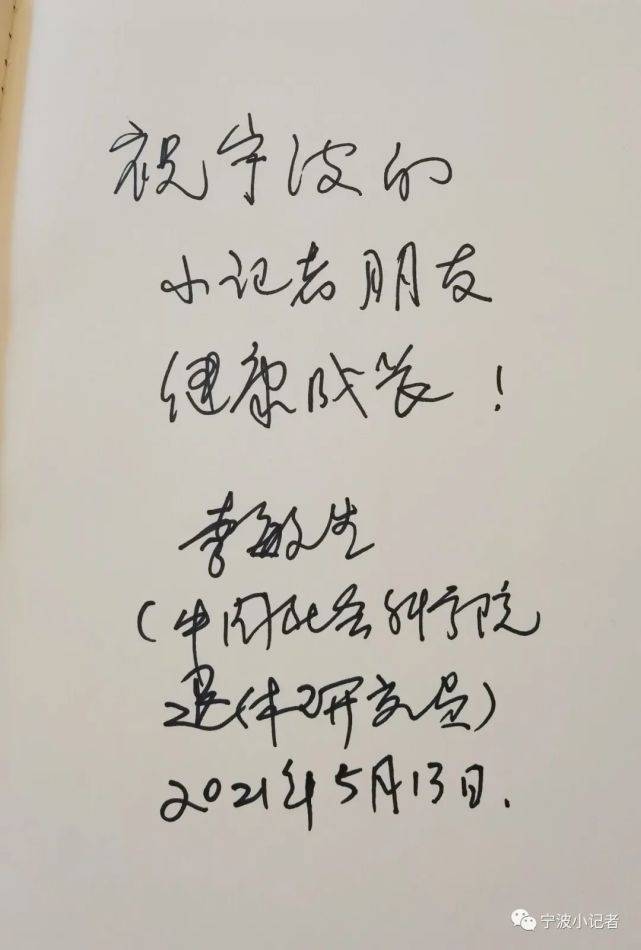 祝宁波的
小记者朋友
健康成长！
李敏生
（中国社会科学院
退休研究员）
2021年5月13日.
宁波小记者